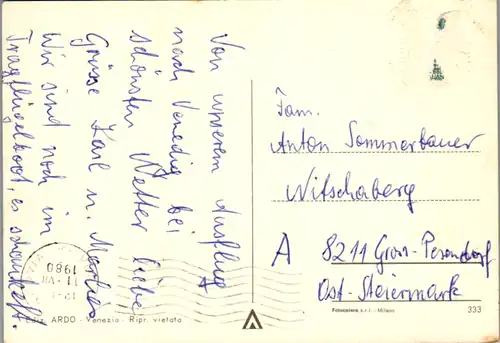 Von unserem Ausflug
nach Venedig bei
schönsten Wetter liebe
Grüsse Karl u. Marlies
Wir sind noch im
Tragflügelboot, es schaukelt.
Fam.
Anton Sommerbauer
Nitschaberg
A 8211 Gross-Pesendorf
Ost-Steiermark
11.VII
1980
Ediz. ARDO - Venezia - Ripr. vietata
Fotocolore s.r.l. - Milano
333